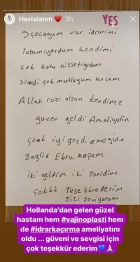 Hastalarım 3s
YES
3 çocuğum var idrarimi
tutamıyordum kendimi
çok kötü hissediyordum
şimdi çok mutluyum hocam
Allah razı olsun kendime
güven geldi Ameliyatım
çook iyi geçti emeğine
Sağlık Ebru hocam
iki geldim iki tanıdım
çokkk Teşekürederim
Sizi Seviyorum
Hollanda'dan gelen güzel
hastam hem #vajinoplasti hem
de #idrarkaçırma ameliyatını
oldu ... güveni ve sevgisi için
çok teşekkür ederim 💙🙏